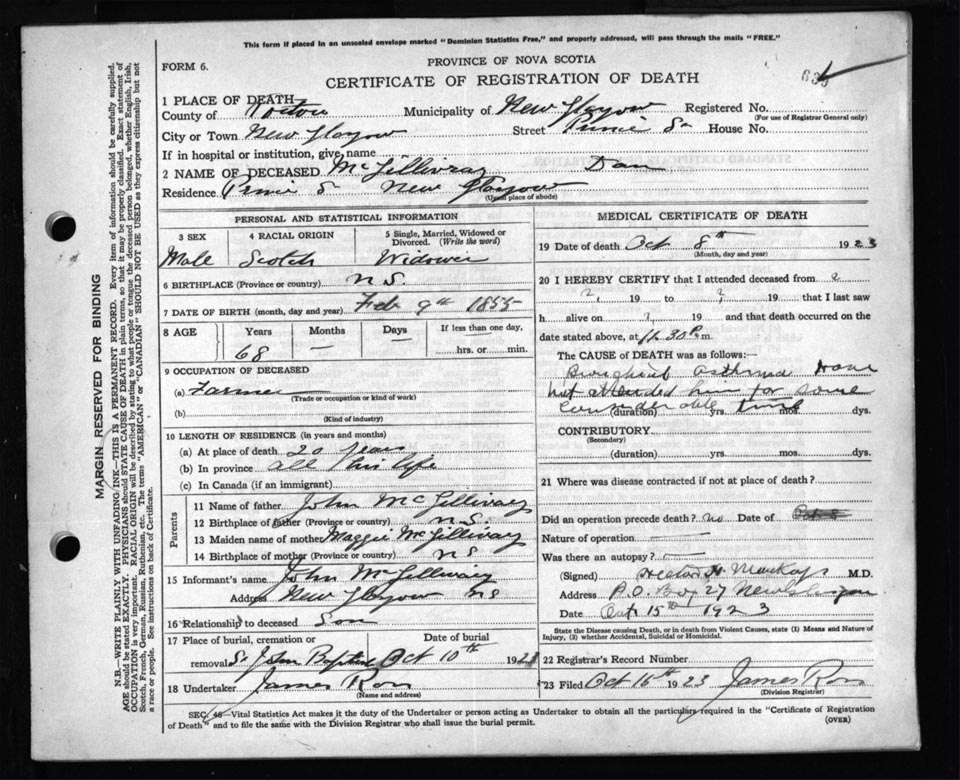 This form if placed in an unsealed envelope marked "Dominion Statistics Free," and properly addressed, will pass through the mails "FREE."
FORM 6.
PROVINCE OF NOVA SCOTIA
CERTIFICATE OF REGISTRATION OF DEATH
1 PLACE OF DEATH
County of Pictou Municipality of New Glasgow Registered No.
(For use of Registrar General only)
City or Town New Glasgow Street House No.
If in hospital or institution, give name
2 NAME OF DECEASED McGillivray Dan
Residence New Glasgow
(Usual place of abode)
PERSONAL AND STATISTICAL INFORMATION
3 SEX 4 RACIAL ORIGIN 5 Single, Married, Widowed or Divorced. (Write the word)
Male Scotch Widower
6 BIRTHPLACE (Province or country) N.S.
7 DATE OF BIRTH (month, day and year) Feb 9th 1855
8 AGE Years Months Days If less than one day,
68 — — hrs. or min.
9 OCCUPATION OF DECEASED
(a) Farmer
(Trade or occupation or kind of work)
(b)
(Kind of industry)
10 LENGTH OF RESIDENCE (in years and months)
(a) At place of death 20 years
(b) In province all his life
(c) In Canada (if an immigrant)
Parents
11 Name of father John McGillivray
12 Birthplace of father (Province or country) N.S.
13 Maiden name of mother Maggie McGillivray
14 Birthplace of mother (Province or country) N S
15 Informant's name John McGillivray
Address New Glasgow N S
16 Relationship to deceased Son
17 Place of burial, cremation or Date of burial
removal St John Baptist Oct 10th 1923
18 Undertaker James Ross
(Name and address)
MEDICAL CERTIFICATE OF DEATH
19 Date of death Oct 8th 1923
(Month, day and year)
20 I HEREBY CERTIFY that I attended deceased from ?
?, 19 to ?, 19 that I last saw
h alive on ?, 19 and that death occurred on
date stated above, at 11.30 P.m.
The CAUSE of DEATH was as follows:—
Bronchial asthma Have
not attended him for some
considerable time
(duration) yrs. mos. dys.
CONTRIBUTORY
(Secondary)
(duration) yrs. mos. dys.
21 Where was disease contracted if not at place of death?
Did an operation precede death? no Date of
Nature of operation —
Was there an autopsy? —
(Signed) Hector H. MacKay M.D.
Address P.O. Box 27 New Glasgow
Date Oct 15th 1923
State the Disease causing Death, or in death from Violent Causes, state (1) Means and Nature of
Injury, (2) whether Accidental, Suicidal or Homicidal.
22 Registrar's Record Number
23 Filed Oct 16th 1923 James Ross
(Division Registrar)
SEC. 46—Vital Statistics Act makes it the duty of the Undertaker or person acting as Undertaker to obtain all the particulars required in the "Certificate of Registration
of Death" and to file the same with the Division Registrar who shall issue the burial permit.
(OVER)
MARGIN RESERVED FOR BINDING
N.B.—WRITE PLAINLY WITH UNFADING INK—THIS IS A PERMANENT RECORD. Every item of information should be carefully supplied.
AGE should be stated EXACTLY. PHYSICIANS should STATE CAUSE OF DEATH in plain terms, so that it may be properly classified. Exact statement of
OCCUPATION is very important. RACIAL ORIGIN will be described by stating to what people or tongue the deceased person belonged, whether English, Irish,
Scotch, French, German, Russian, Ruthenian, etc. The terms "AMERICAN" or "CANADIAN" SHOULD NOT BE USED as they express citizenship but not
a race or people. See instructions on back of Certificate.